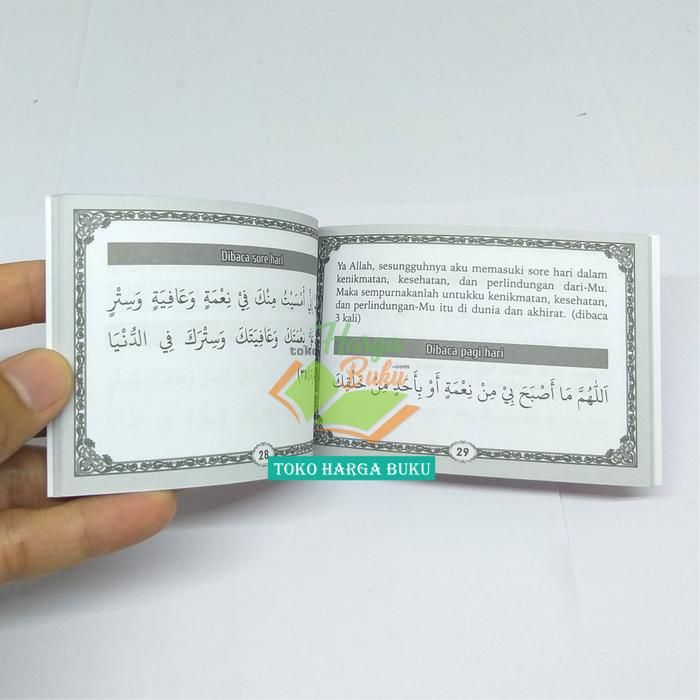 Dibaca sore hari
أَمْسَيْتُ مِنْكَ فِيْ نِعْمَةٍ وَعَافِيَةٍ وَسِتْرٍ
نِعْمَتَكَ وَعَافِيَتَكَ وَسِتْرَكَ فِي الدُّنْيَا
28
Ya Allah, sesungguhnya aku memasuki sore hari dalam
kenikmatan, kesehatan, dan perlindungan dari-Mu.
Maka sempurnakanlah untukku kenikmatan, kesehatan,
dan perlindungan-Mu itu di dunia dan akhirat. (dibaca
3 kali)
Dibaca pagi hari
اَللّٰهُمَّ مَا أَصْبَحَ بِيْ مِنْ نِعْمَةٍ أَوْ بِأَحَدٍ مِنْ خَلْقِكَ
29
toko
Harga
Buku.com
TOKO HARGA BUKU